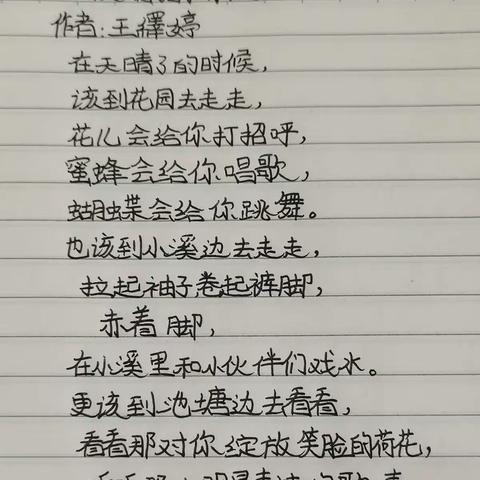 作者:王繹婷
在天晴了的时候,
该到花园去走走,
花儿会给你打招呼,
蜜蜂会给你唱歌,
蝴蝶会给你跳舞。
也该到小溪边去走走,
拉起袖子卷起裤脚,
赤着脚,
在小溪里和小伙伴们戏水。
更该到池塘边去看看,
看看那对你绽放笑脸的荷花,